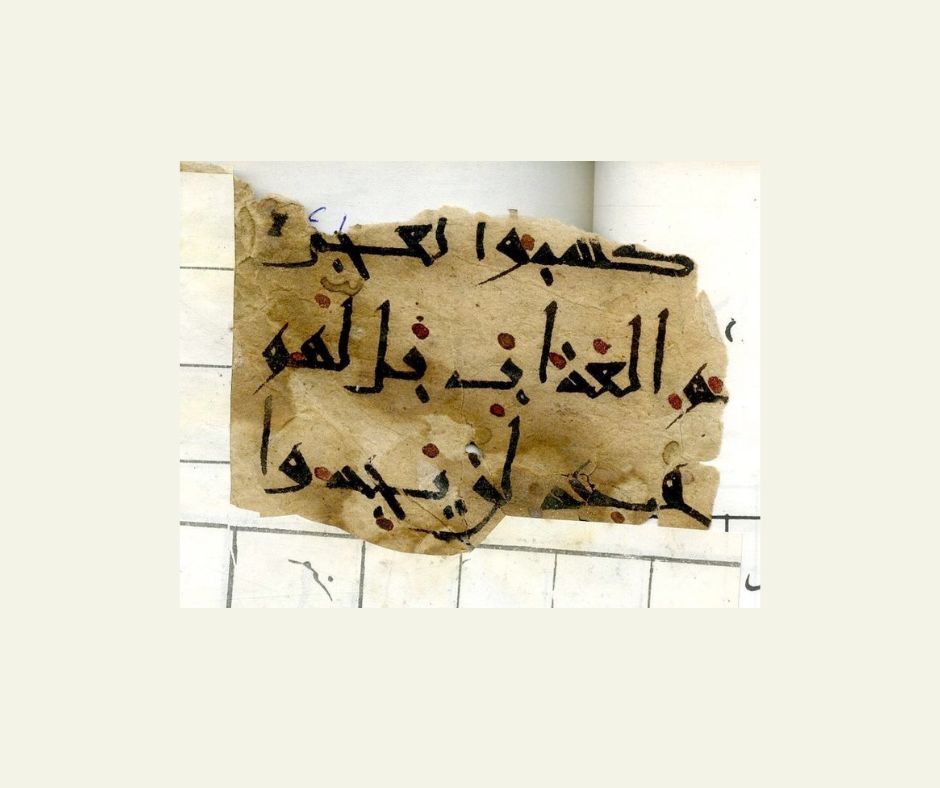 كسبوا لعجل
هم العذاب بل لهم
موعد لن يجدوا